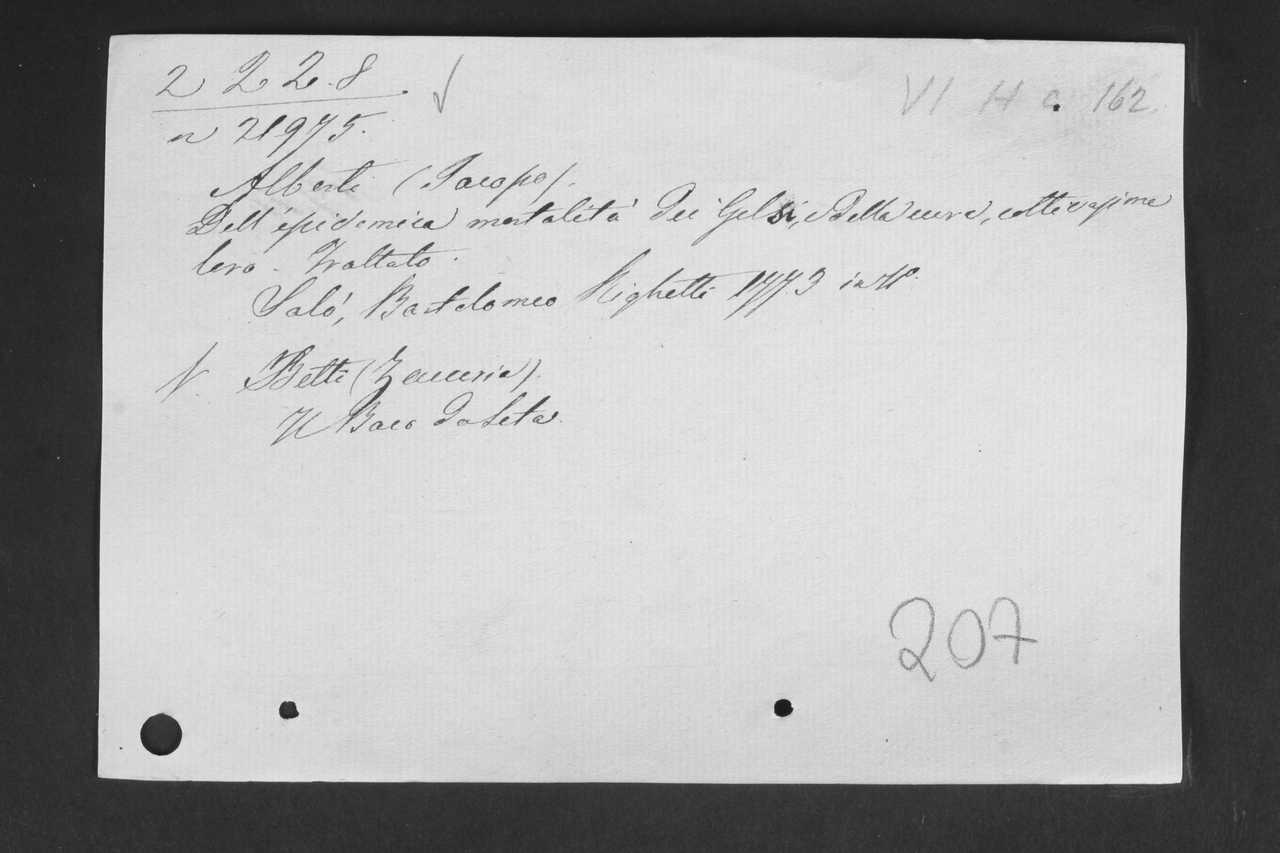 2 2 2.8.
VI H c. 162.
n 21975.
Alberti (Jacopo).
Dell'epidemica mortalità dei Gelsi, e della cura, coltivazione
loro. Trattato.
Salò, Bartolomeo Righetti 1773 in 4º.
V. Betti (Zaccaria).
Il Baco da Seta.
207